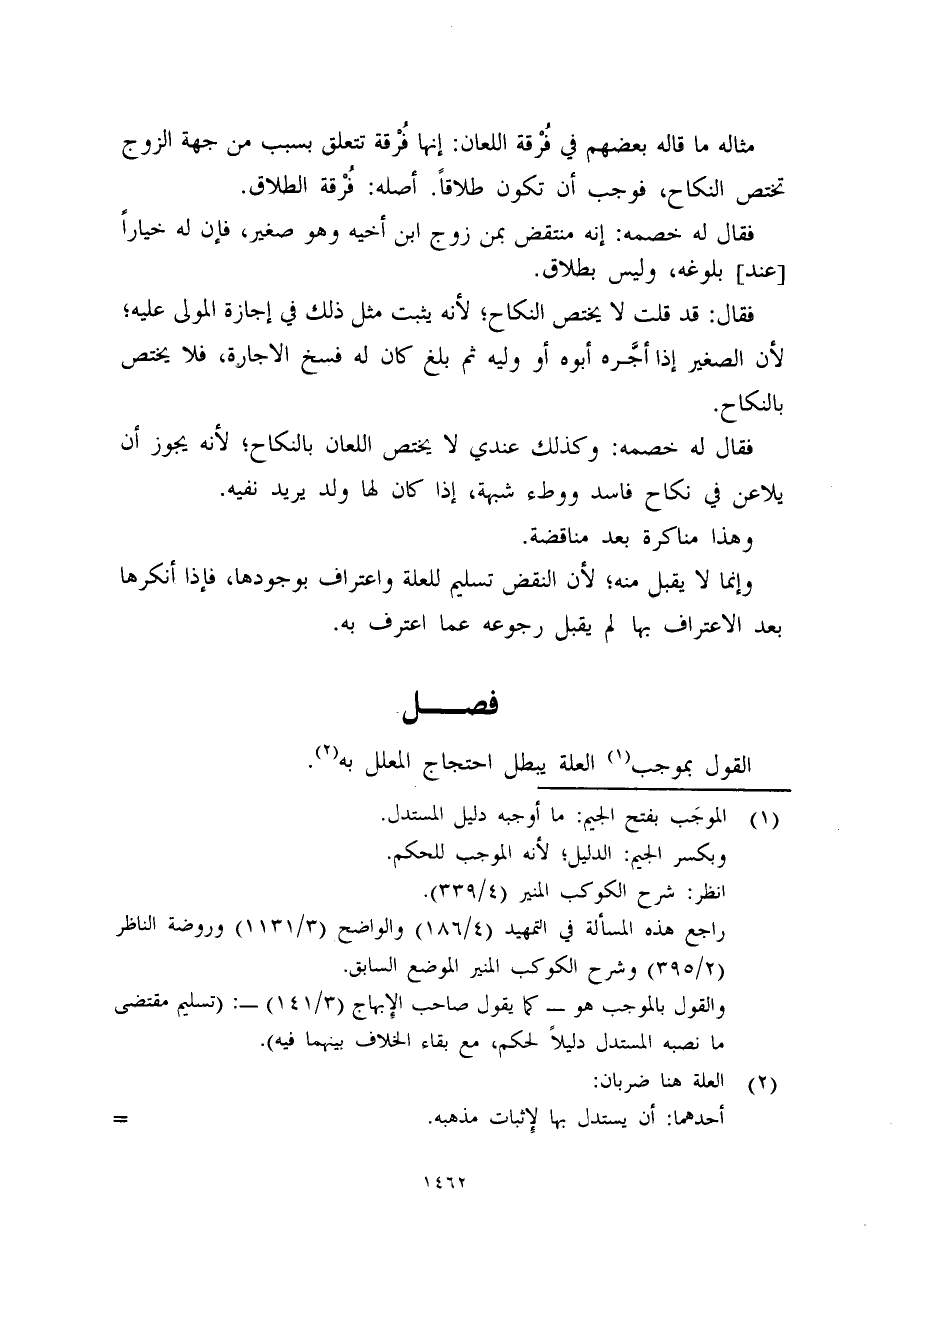 مثاله ما قاله بعضهم في فُرْقة اللعان: إنها فُرْقة تتعلق بسبب من جهة الزوج
تختص النكاح، فوجب أن تكون طلاقاً. أصله: فُرْقة الطلاق.
فقال له خصمه: إنه منتقض بمن زوج ابن أخيه وهو صغير، فإن له خياراً
[عند] بلوغه، وليس بطلاق.
فقال: قد قلت لا يختص النكاح؛ لأنه يثبت مثل ذلك في إجازة المولى عليه؛
لأن الصغير إذا أجَّره أبوه أو وليه ثم بلغ كان له فسخ الاجارة، فلا يختص
بالنكاح.
فقال له خصمه: وكذلك عندي لا يختص اللعان بالنكاح؛ لأنه يجوز أن
يلاعن في نكاح فاسد ووطء شبهة، إذا كان لها ولد يريد نفيه.
وهذا مناكرة بعد مناقضة.
وإنما لا يقبل منه؛ لأن النقض تسليم للعلة واعتراف بوجودها، فإذا أنكرها
بعد الاعتراف بها لم يقبل رجوعه عما اعترف به.
فصــــل
القول بموجب(١) العلة يبطل احتجاج المعلل به(٢).
(١) الموجَب بفتح الجيم: ما أوجبه دليل المستدل.
وبكسر الجيم: الدليل؛ لأنه الموجب للحكم.
انظر: شرح الكوكب المنير (٣٣٩/٤).
راجع هذه المسألة في التمهيد (١٨٦/٤) والواضح (١١٣١/٣) وروضة الناظر
(٣٩٥/٢) وشرح الكوكب المنير الموضع السابق.
والقول بالموجب هو ــ كما يقول صاحب الإبهاج (١٤١/٣) ــ: (تسليم مقتضى
ما نصبه المستدل دليلاً لحكم، مع بقاء الخلاف بينهما فيه).
(٢) العلة هنا ضربان:
أحدهما: أن يستدل بها لإثبات مذهبه. =
١٤٦٢